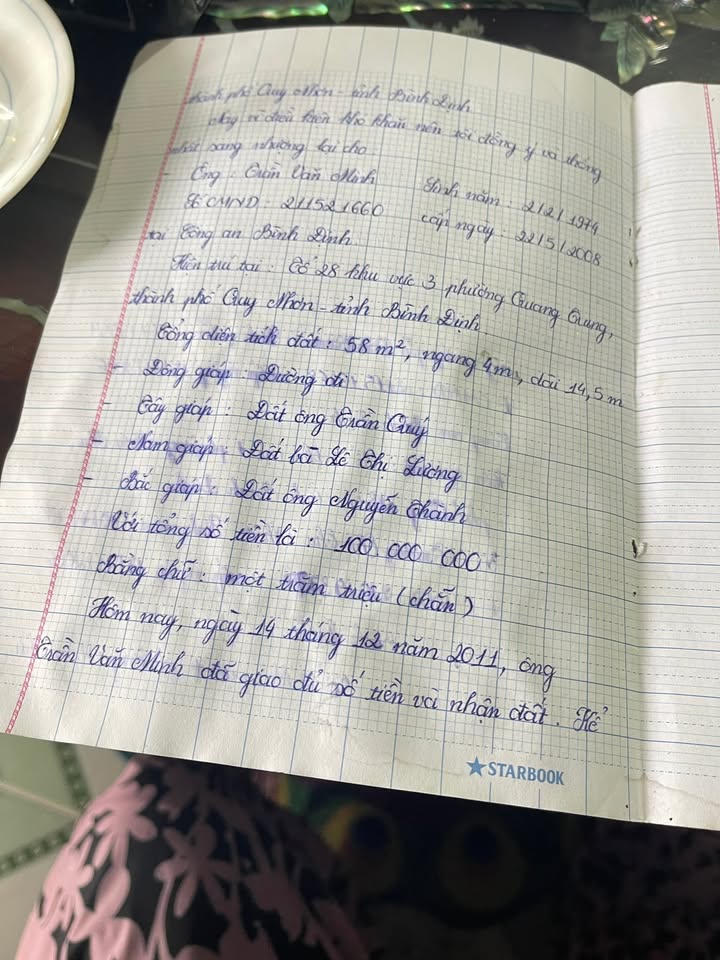 thành phố Quy Nhơn - tỉnh Bình Định
Nay vì điều kiện khó khăn nên tôi đồng ý và thống
nhất sang nhượng lại cho
- Ông : Trần Văn Minh Sinh năm : 2/2/1974
Số CMND : 211521660 cấp ngày : 22/5/2008
tại Công an Bình Định.
Hiện trú tại : Tổ 28 khu vực 3 phường Quang Trung,
thành phố Quy Nhơn - tỉnh Bình Định
Tổng diện tích đất : 58 m², ngang 4m, dài 14,5 m
- Đông giáp : Đường đi
- Tây giáp : Đất ông Trần Quý
- Nam giáp : Đất bà Lê Thị Lương
- Bắc giáp : Đất ông Nguyễn Thành
Với tổng số tiền là : 100 000 000
Bằng chữ : một trăm triệu (chẵn)
Hôm nay, ngày 14 tháng 12 năm 2011, ông
Trần Văn Minh đã giao đủ số tiền và nhận đất. Kể
STARBOOK